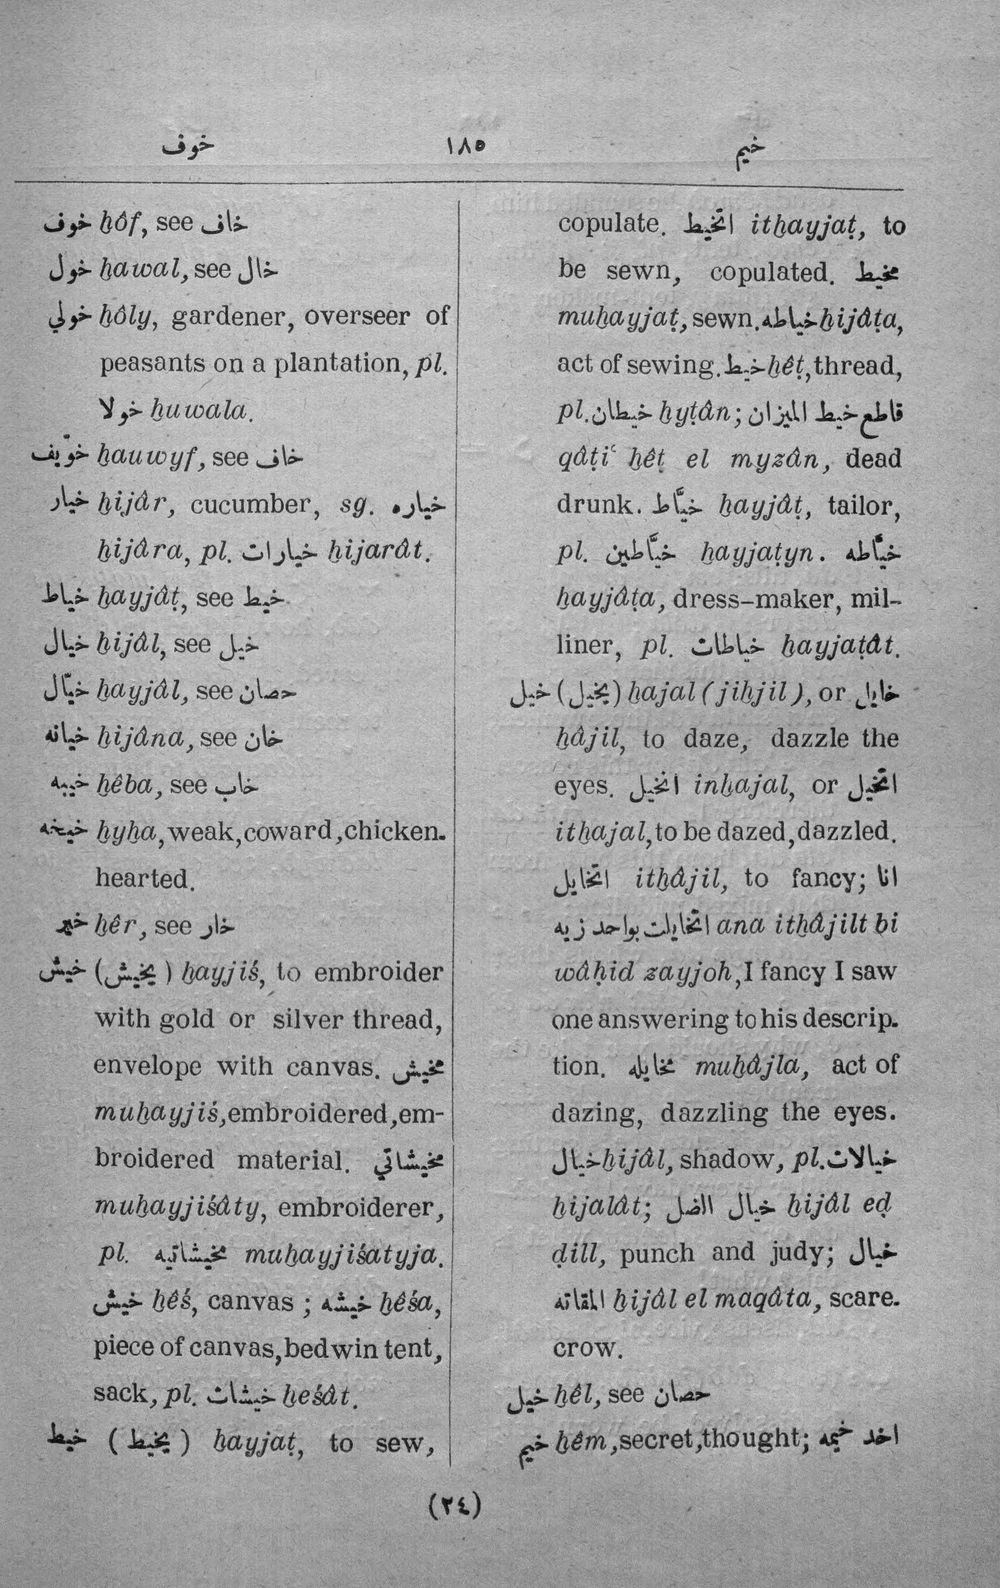 خوف ١٨٥ خيم
خوف ḫôf, see خاف
خول ḫawal, see خال
خولي ḫôly, gardener, overseer of
peasants on a plantation, pl.
خولا ḫuwala.
خوّيف ḫauwyf, see خاف
خيار ḫijâr, cucumber, sg. خياره
ḫijâra, pl. خيارات ḫijarât.
خياط ḫayjâṭ, see خيط
خيال ḫijâl, see خيل
خيّال ḫayjâl, see حصان
خيانه ḫijâna, see خان
خيبه ḫêba, see خاب
خيخه ḫyḫa, weak, coward, chicken-
hearted.
خير ḫêr, see خار
خيش (يخيش) ḫayjiś, to embroider
with gold or silver thread,
envelope with canvas. مخيش
muḫayjiś, embroidered, em-
broidered material. مخيشاتي
muḫayjiśâty, embroiderer,
pl. مخيشاتيه muḫayjiśatyja.
خيش ḫêś, canvas ; خيشه ḫêśa,
piece of canvas, bedwin tent,
sack, pl. خيشات ḫeśât.
خيط (يخيط) ḫayjaṭ, to sew,
copulate. اتخيط itḫayjaṭ, to
be sewn, copulated. مخيط
muḫayjaṭ, sewn. خياطه ḫijâṭa,
act of sewing. خيط ḫêṭ, thread,
pl. خيطان ḫyṭân; قاطع خيط الميزان
qâṭiʿ ḫêṭ el myzân, dead
drunk. خيَّاط ḫayjâṭ, tailor,
pl. خيَّاطين ḫayjaṭyn. خيَّاطه
ḫayjâṭa, dress-maker, mil-
liner, pl. خياطات ḫayjaṭât.
خيل (يخيل) ḫajal (jiḫjil), or خايل
ḫâjil, to daze, dazzle the
eyes. انخيل inḫajal, or اتخيل
itḫajal, to be dazed, dazzled.
اتخايل itḫâjil, to fancy; انا
اتخايلت بواحد زيه ana itḫâjilt bi
wâḥid zayjoh, I fancy I saw
one answering to his descrip-
tion. مخايله muḫâjla, act of
dazing, dazzling the eyes.
خيال ḫijâl, shadow, pl. خيالات
ḫijalât; خيال الضل ḫijâl eḍ
ḍill, punch and judy; خيال
المقاته ḫijâl el maqâta, scare-
crow.
خيل ḫêl, see حصان
خيم ḫêm, secret, thought; اخد خيمه
(٢٤)